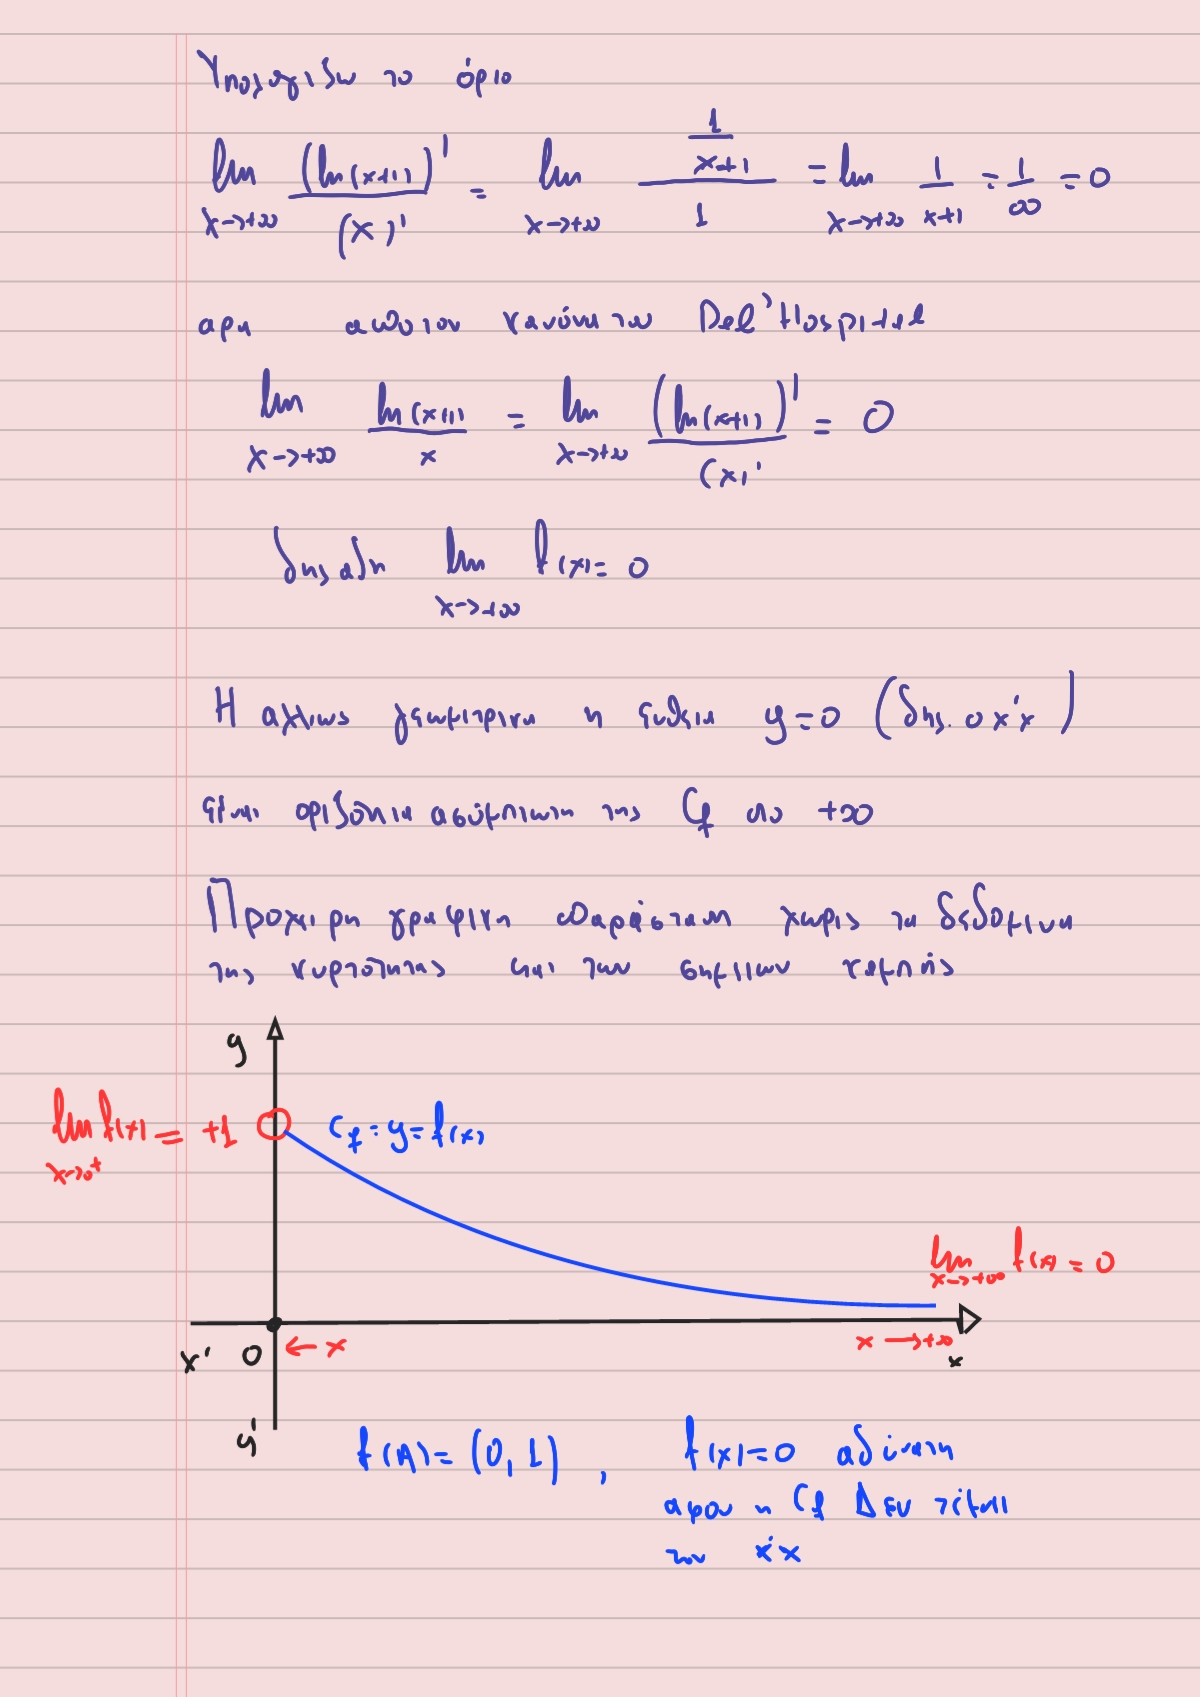 Υπολογιζω το όριο
lim x→+∞ (ln(x+1))' / (x)' = lim x→+∞ (1/(x+1)) / 1 = lim x→+∞ 1/(x+1) = 1/∞ = 0
αρα απο τον κανόνα του Del'Hospital
lim x→+∞ ln(x+1)/x = lim x→+∞ (ln(x+1))' / (x)' = 0
δηλαδη lim x→+∞ f(x) = 0
Η αλλιως γεωμετρικα η ευθεια y=0 (δηλ. ο x'x)
ειναι οριζόντια ασύμπτωτη της Cf στο +∞
Προχειρη γραφικη παράσταση χωρις τα δεδομενα
της κυρτότητας και των σημειων καμπής
y
lim x→0+ f(x) = +1
Cf: y=f(x)
lim x→+∞ f(x) = 0
x' 0 ← x x→+∞ x
y'
f(A) = (0, 1) , f(x)=0 αδύνατη
αφου η Cf Δεν τέμνει
τον x'x